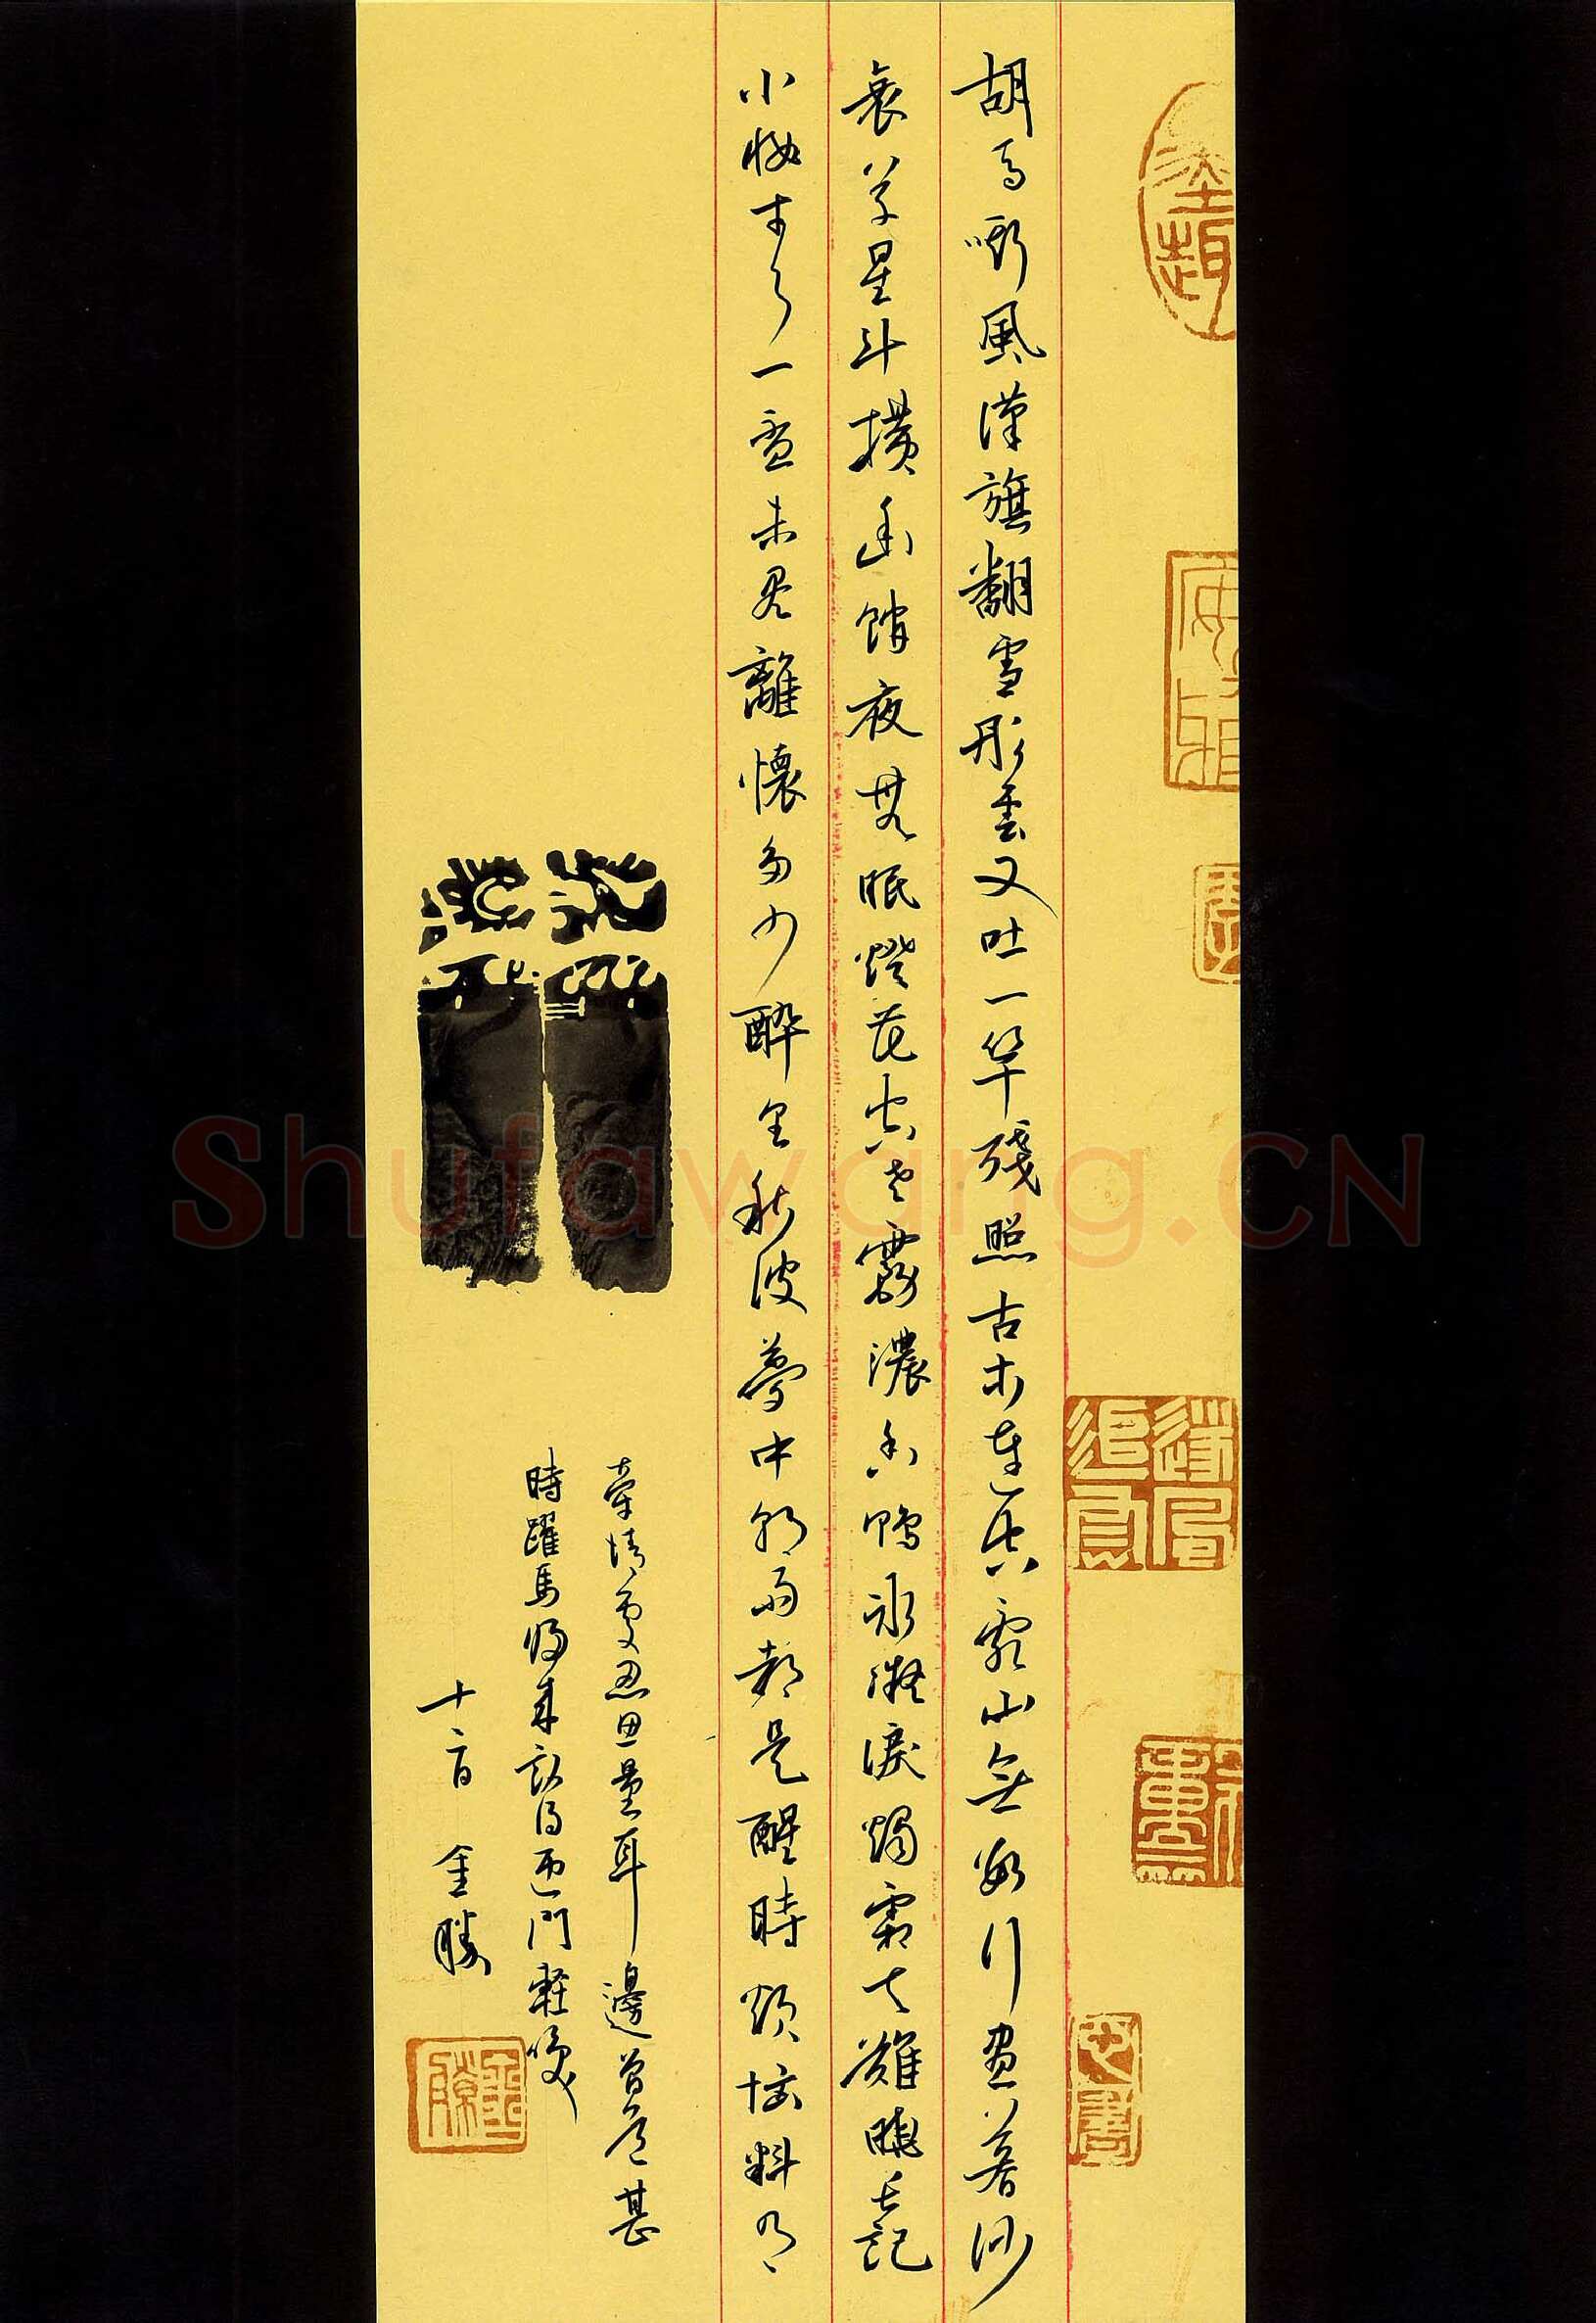 胡馬嘶風漢旗翻雪彤雲又吐一竿殘照古木連空亂山無數行盡暮沙
衰草星斗橫幽館夜無眠燈花空老霧濃香鴨冰凝淚燭霜天難曉長記
小妝才了一盃未盡離懷多少醉里秋波夢中朝雨都是醒時煩惱料有
牽情處忍思量耳邊曾道甚
時躍馬歸來認得迎門輕笑
金勝
Shufawang.CN